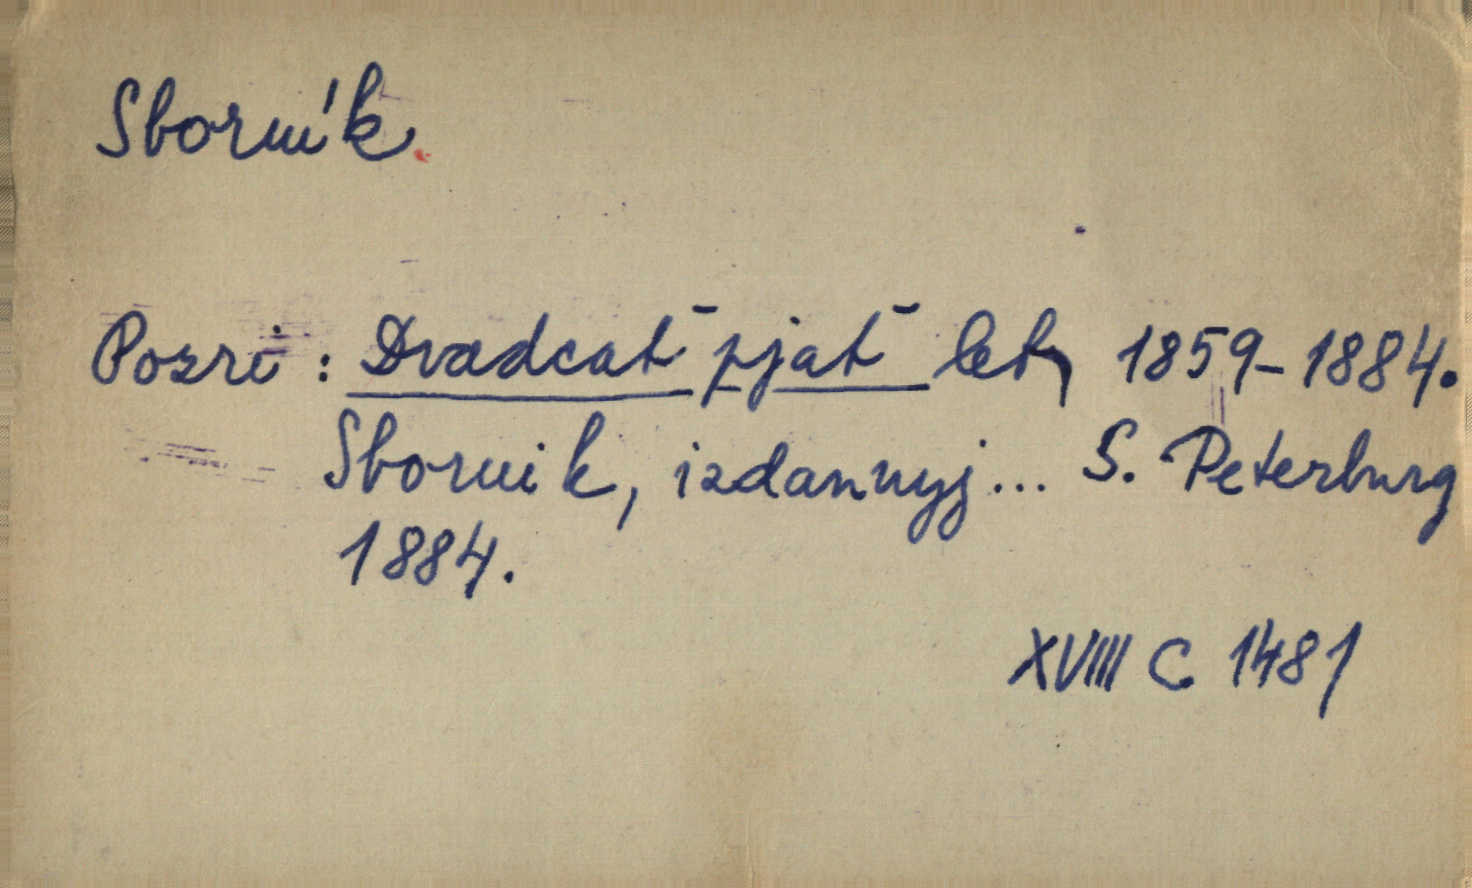 Sborník.
Pozri: Dvadcat̄ pjat̄ let, 1859-1884.
Sbornik, izdannyj... S. Peterburg
1884.
XVIII C 1481